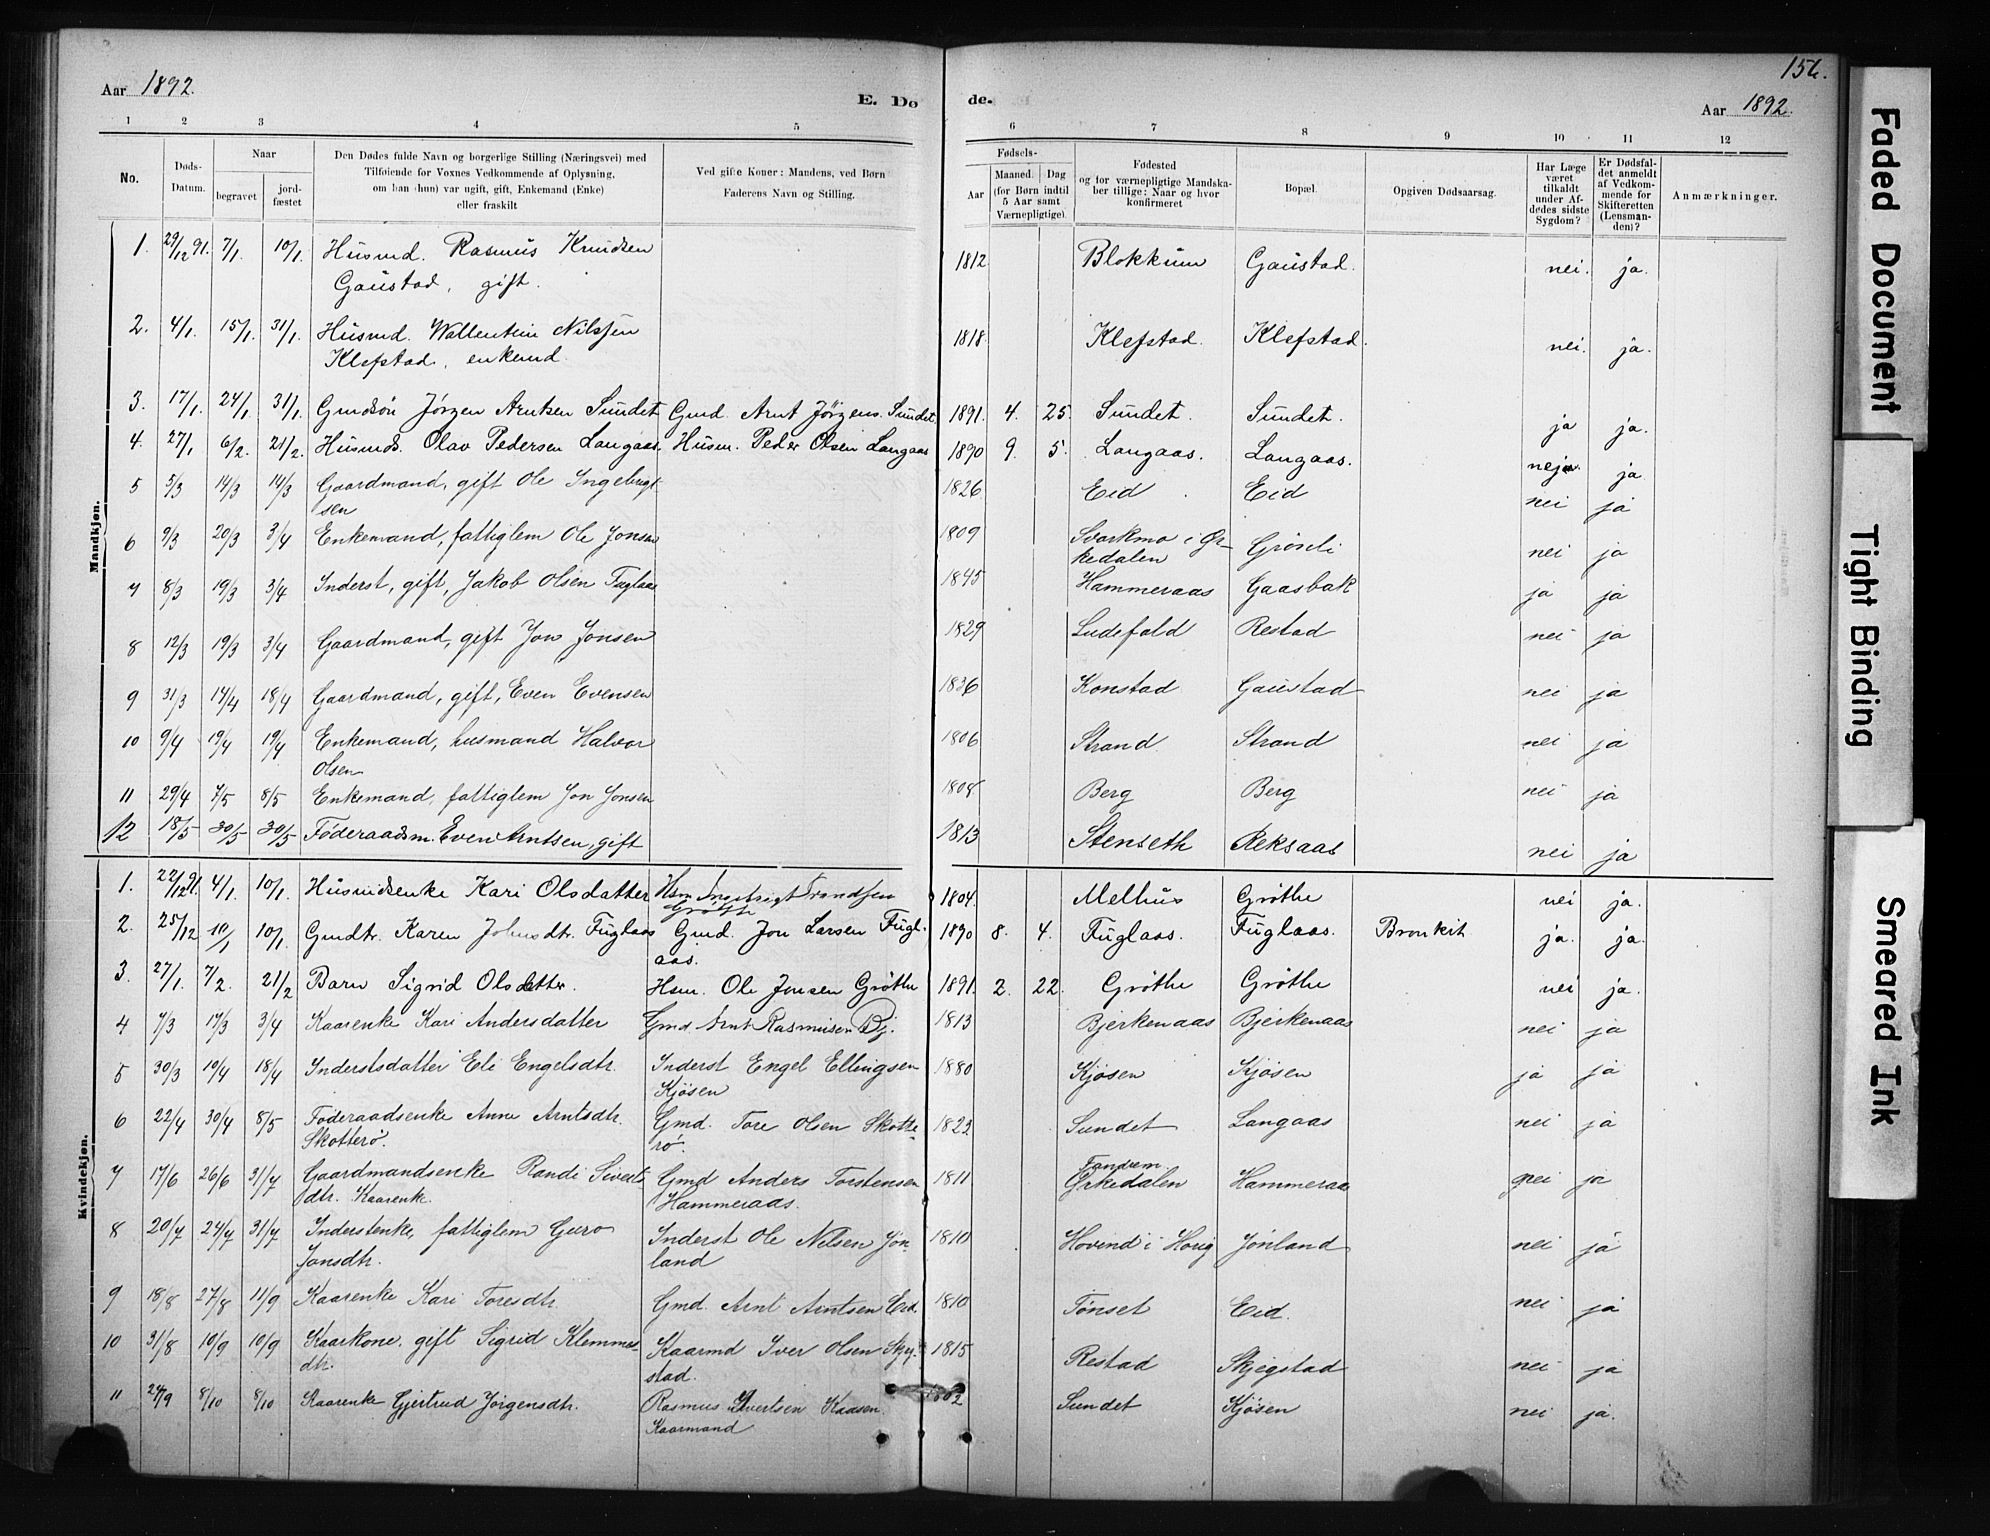 Aar 1892.
E. Dø de.
156.
Aar 1892.
1 2 3 4 5 6 7 8 9 10 11 12
No.
Døds-Datum.
Naar
begravet
jord-fæstet
Den Dødes fulde Navn og borgerlige Stilling (Næringsvei) med
Tilføiende for Voxnes Vedkommende af Oplysning,
om han (hun) var ugift, gift, Enkemand (Enke)
eller fraskilt
Ved gifte Koner: Mandens, ved Børn
Faderens Navn og Stilling.
Fødsels-
Aar
Maaned. Dag
(for Børn indtil
5 Aar samt
Værnepligtige).
Fødested
og for værnepligtige Mandska-
ber tillige: Naar og hvor
konfirmeret
Bopæl.
Opgiven Dødsaarsag.
Har Læge
været
tilkaldt
under Af-
dødes sidste
Sygdom?
Er Dødsfal-
det anmeldt
af Vedkom-
mende for
Skifteretten
(Lensman-
den)?
Anmærkninger.
Mandkjøn.
1. 29/12 91. 7/1. 10/1. Husmd. Rasmus Knudsen 1812 Blokkum Gaustad. nei. ja.
Gaustad, gift.
2. 4/1. 15/1. 31/1. Husmd. Wallentin Nilssen 1818 Klefstad. Klefstad. nei. ja.
Klefstad, enkemd.
3. 17/1. 24/1. 31/1. Gmdsön Jörgen Arntsen Sundet Gmd. Arnt Jörgens. Sundet. 1891. 4. 25. Sundet. Sundet. ja ja.
4. 27/1 6/2. 21/2. Husmds. Olav Pedersen Langaas. Husm. Peder Olsen Langaas 1890 9. 5. Langaas. Langaas. ja
5 5/3 14/3 14/3 Gaardmand, gift Ole Ingebrigt- 1826 Eid Eid nei ja
sen
6 9/3 20/3 3/4 Enkemand, fattiglem Ole Jonsen 1809 Svorkmo i Ør- Gröseli nei ja
kedalen
7 8/3 19/3 3/4 Inderst, gift, Jakob Olsen Fuglaas 1845 Hammeraas Gaasbak ja ja
8 12/3 19/3 3/4 Gaardmand, gift Jon Jonsen 1829 Ludefald Restad nei ja
9 31/3 14/4 18/4 Gaardmand, gift, Even Evensen 1836 Konstad Gaustad nei ja
10 9/4 19/4 19/4 Enkemand, husmand Halvor 1806 Strand Strand nei ja
Olsen
11 29/4 7/5 8/5 Enkemand, fattiglem Jon Jonsen 1808 Berg Berg nei ja
12 18/5 30/5 30/5 Föderaadsm. Even Arntsen, gift 1813 Stenseth Reksaas nei ja
Kvindekjøn.
1. 22/12 91. 4/1. 10/1. Husmdsenke Kari Olsdatter Hsm Ingebrigt Trondsen 1804. Melhus Gröthe nei ja.
Gröthe
2. 25/12 10/1 10/1. Gmdtr. Karen Johnsdtr. Fuglaas Gmd. Jon Larsen Fugl- 1890 8. 4. Fuglaas. Fuglaas. Bronkit ja. ja.
aas.
3. 27/1. 7/2. 21/2 Barn Sigrid Olsdatter. Hsm. Ole Jonsen Gröthe 1891. 2. 22. Gröthe Gröthe nei ja.
4 7/3 17/3 3/4 Kaarenke Kari Andersdatter Gmd. Arnt Rasmusen Bj. 1813 Bjerkenaas Bjerkenaas nei ja
5 30/3 10/4 18/4 Inderstsdatter Eli Engelsdtr. Inderst Engel Ellingsen 1880 Kjösen Kjösen ja ja
Kjösen
6 22/4 30/4 8/5 Föderaadsenke Anne Arntsdtr. Gmd. Tore Olsen Skotte- 1823 Sundet Langaas nei ja
Skotterö. rö.
7 17/6 26/6 31/7 Gaardmandsenke Randi Siverts- Gmd Anders Torstensen 1811 Ørkedalen Hammeraas nei ja
dtr. Kaarenke. Hammeraas.
8 20/7 24/7 31/7 Inderstenke, fattiglem Guro Inderst Ole Nilsen Jön- 1810 Hovind i Horig Jönland nei ja
Jonsdtr. land
9 18/8 27/8 11/9 Kaarenke Kari Toresdtr. Gmd. Arnt Arntsen Eid 1810 Tönset Eid. nei ja
10 31/8 10/9 10/9 Kaarkone, gift Sigrid Klemmets- Kaarmd Iver Olsen Skjeg- 1815 Restad Skjegstad nei ja
dtr. stad.
11 24/9 8/10 8/10 Kaarenke Gjertrud Jörgensdtr. Rasmus Sivertsen Kaasen. Sundet Kjösen nei ja.
Kaarmand
Faded Document
Tight Binding
Smeared Ink